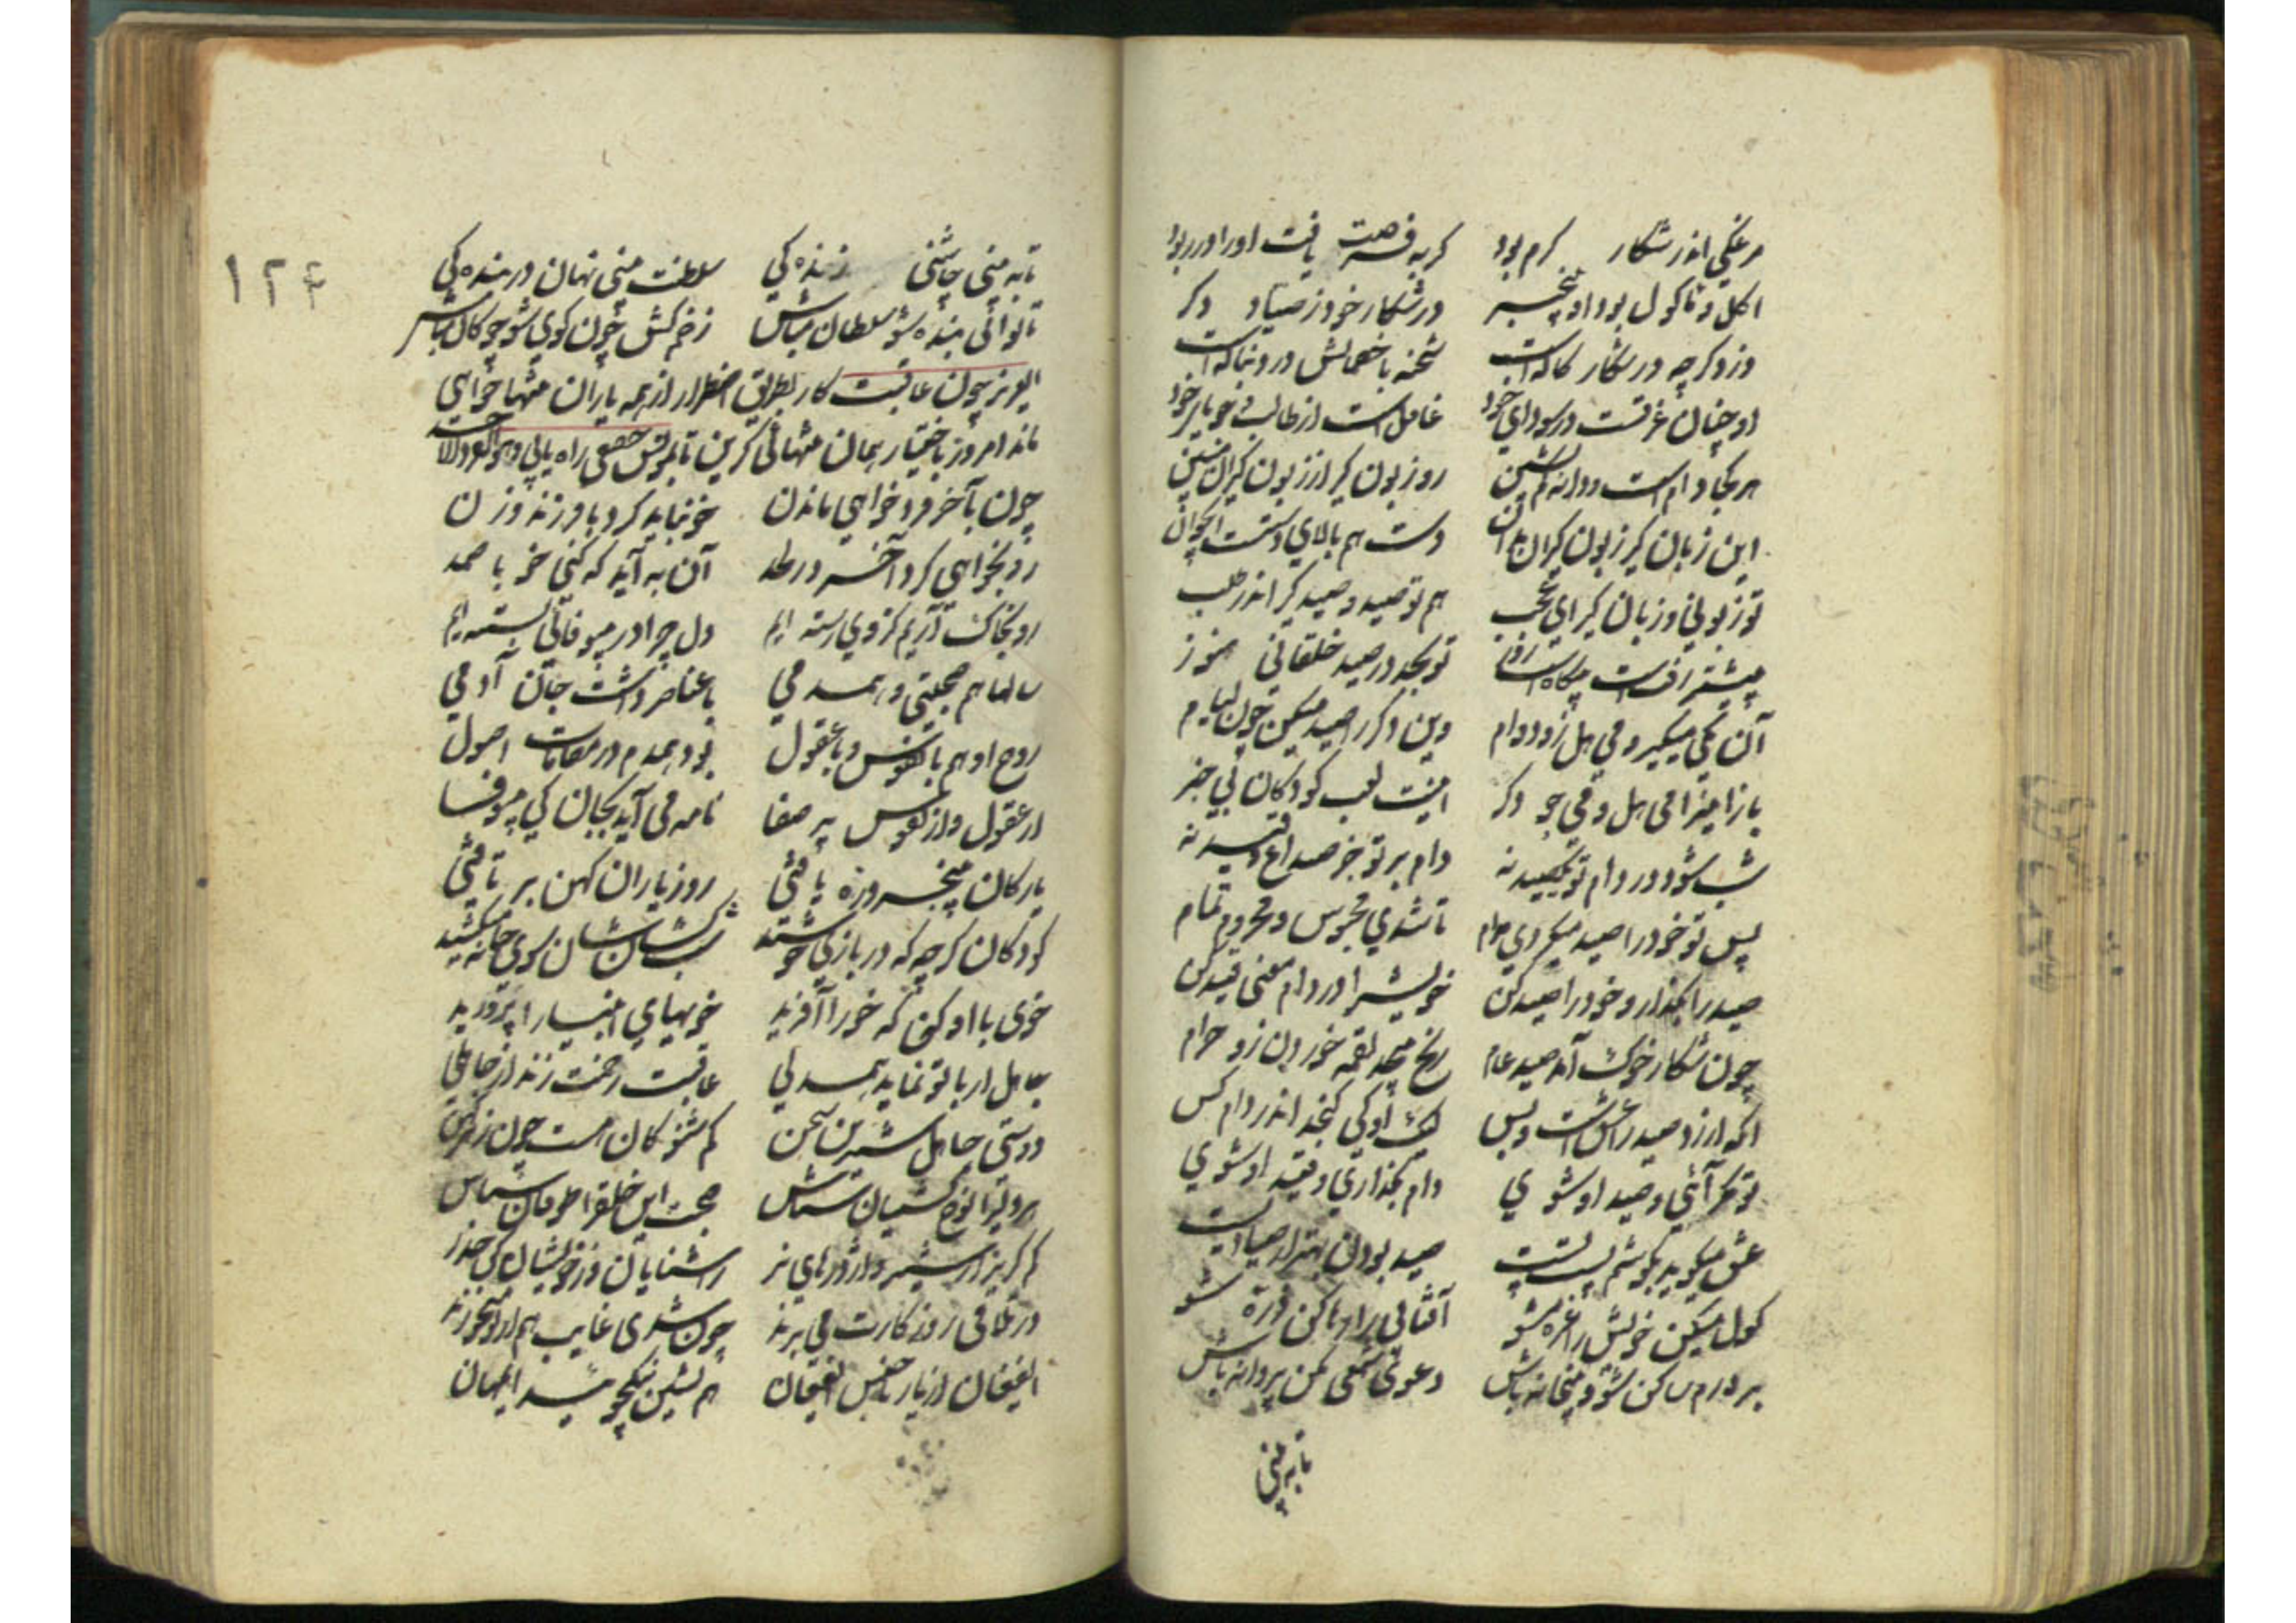 مرغکی اندر شکار کرم بود کربه فرصت یافت اورا در ربود
اکل و ماکول بود او بیخبر در شکار خود ز صیاد دکر
دزد کرچه در شکار کاله است شحنه با خصمانش در دنباله است
او چنان غرقست در سودای خود غافل است از طالب و جویای خود
هر کجا دام است و دانه کم نشین رو زبون کیر از زبون کیران ببین
این زبان کیر زبون کیران بدان دست هم بالای دستست ای جوان
تو زبونی و زبان کیر ای عجب هم تو صید و صید کیر اندر طلب
بیشتر رفتست بیکاه است روز تو بجد در صید خلقانی هنوز
آن یکی میکیر و می هل زود دام وین دکر را صید میکن چون لیام
باز اینرا می هل و می جو دکر اینت لعب کودکان بی خبر
شب شود در دام تو یک صید نه دام بر تو جز صداع و قید نه
پس تو خود را صید میکردی بدام تا شدی محبوس و محروم تمام
صید را بکذار و خود را صید کن خویش را در دام معنی قید کن
چون شکار خوک آمد صید عام رنج بیحد لقمه خوردن زو حرام
آنکه ارزد صید را عشق است و بس لیک او کی کنجد اندر دام کس
تو مکر آئی و صید او شوی دام بکذاری و قید او شوی
عشق میکوید بکوشم پست پست صید بودن بهتر از صیادیست
کول میکن خویش را غره مشو آفتابی را رها کن ذره شو
بر درم ساکن شو و بیخانه باش دعوی شمعی مکن پروانه باش
تا به بینی
۱۲۴
تا به بینی چاشنی زنده کی سلطنت بینی نهان در بنده کی
تا توانی بنده شو سلطان مباش زخم کش چون کوی شو چوکان مباش
ایعزیز چون عاقبت کار بطریق اضطرار از همه یاران تنها خواهی
ماند امروز باختیار بهمان تنهائی کزین تا بمونس حقیقی راه یابی
چون بآخر فرد خواهی ماندن خو نباید کرد با فرزند و زن
رو بخواهی کرد آخر در لحد آن به آید که کنی خو با صمد
رو بخاک آریم کز وی رسته ایم دل چرا در بیوفائی بسته ایم
سالها هم صحبتی و همدمی با عناصر داشت جان آدمی
روح او هم با نفوس و با عقول بود همدم در مقامات اصول
از عقول و از نفوس پر صفا نامه می آید بجان کی بیوفا
یارکان پنجروزه یافتی روز یاران کهن بر تافتی
کودکان کرچه که در بازی خوشند شب کشان شان سوی خانه میکشند
خوی با او کن که خو را آفرید خوبهای انبیا را پرورید
جاهل ار با تو نماید همدلی عاقبت زخمت زند از جاهلی
دوستی جاهل شیرین سخن کم شنو کان هست چون زهر کهن
هر ولیرا نوح کشتیبان شناس صحبت این خلقرا طوفان شناس
کم کریز از شیر و اژدرهای نر ز آشنایان و ز خویشان کن حذر
در تلاقی روزکارت می برند چون شدی غایب هم از تو میخورند
الفغان از یار ناجنس الفغان هم نشین نیک جوئید ایمهان